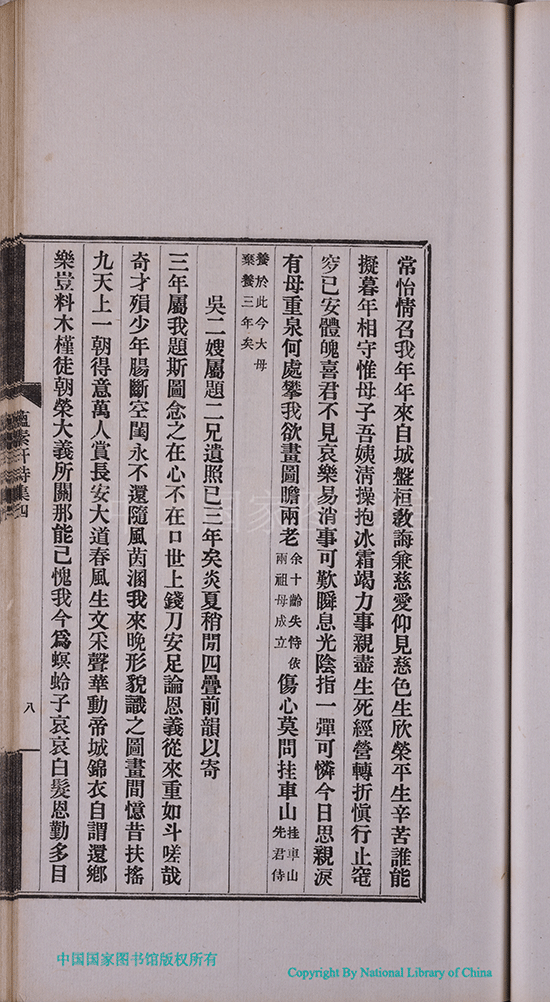 常怡情召我年年來自城盤桓敎誨兼慈愛仰見慈色生欣榮平生辛苦誰能
擬暮年相守惟母子吾姨淸操抱冰霜竭力事親盡生死經營轉折愼行止窀
穸已安體魄喜君不見哀樂易消事可歎瞬息光陰指一彈可憐今日思親淚
有母重泉何處攀我欲畫圖瞻兩老余十齡失恃依兩祖母成立傷心莫問挂車山挂車山先君侍
養於此今大母棄養三年矣
吳二嫂屬題二兄遺照已三年矣炎夏稍閒四疊前韻以寄
三年屬我題斯圖念之在心不在口世上錢刀安足論恩義從來重如斗嗟哉
奇才殞少年腸斷空閨永不還隨風茵溷我來晚形貌識之圖畫間憶昔扶搖
九天上一朝得意萬人賞長安大道春風生文采聲華動帝城錦衣自謂還鄉
樂豈料木槿徒朝榮大義所關那能已愧我今爲螟蛉子哀哀白髮恩勤多目
蘊素軒詩集四
八
中国国家图书馆版权所有
Copyright By National Library of China